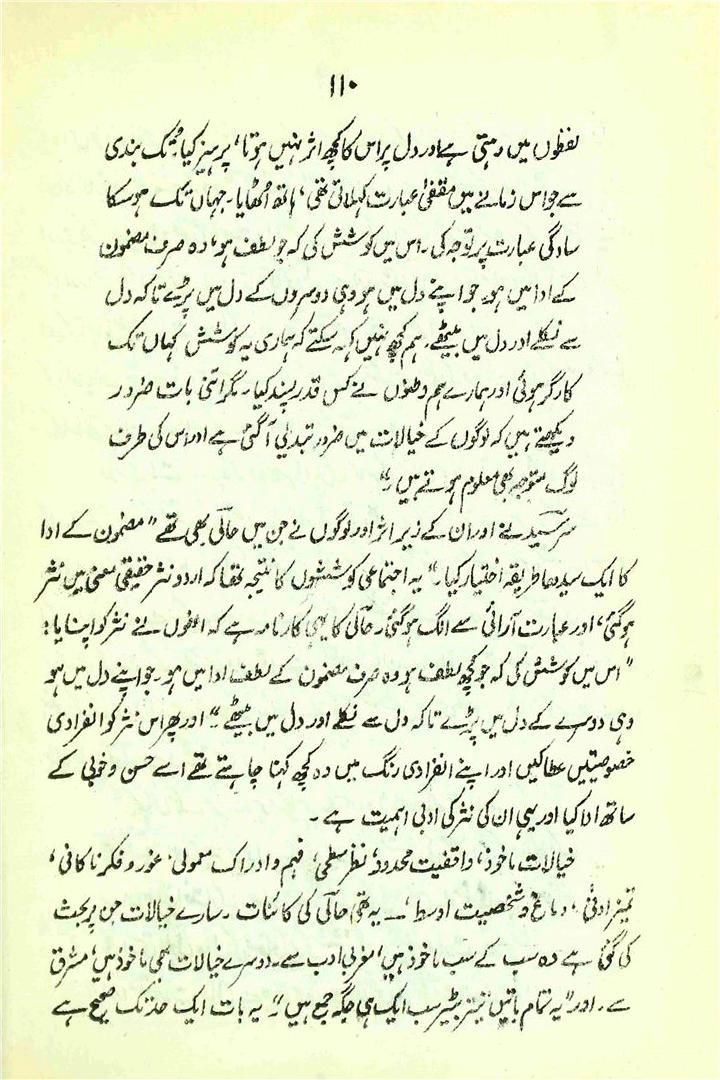 ۱۱۰
لفظوں میں رہتی ہے اور دل پر اس کا کچھ اثر نہیں ہوتا، پرہیز کیا۔ تک بندی
سے جو اس زمانے میں مقفیٰ عبارت کہلاتی تھی، ہاتھ اٹھایا۔ جہاں تک ہو سکا
سادگی عبارت پر توجہ کی۔ اس میں کوشش کی کہ جو لطف ہو، وہ صرف مضمون
کے ادا میں ہو۔ جو اپنے دل میں ہو وہی دوسروں کے دل میں پڑے تاکہ دل
سے نکلے اور دل میں بیٹھے۔ ہم کچھ نہیں کہہ سکتے کہ ہماری یہ کوشش کہاں تک
کارگر ہوئی اور ہمارے ہم وطنوں نے کس قدر پسند کیا۔ مگر اتنی بات ضرور
دیکھتے ہیں کہ لوگوں کے خیالات میں ضرور تبدیلی آ گئی ہے اور اس کی طرف
لوگ متوجہ بھی معلوم ہوتے ہیں۔"
سرسید نے اور ان کے زیر اثر اور لوگوں نے جن میں حالی بھی تھے "مضمون کے ادا
کا ایک سیدھا طریقہ اختیار کیا۔" یہ اجتماعی کوششوں کا نتیجہ تھا کہ اردو نثر حقیقی معنی میں نثر
ہو گئی، اور عبارت آرائی سے الگ ہو گئی۔ حالی کا یہی کارنامہ ہے کہ انھوں نے نثر کو اپنایا؛
"اس میں کوشش کی کہ جو کچھ لطف ہو وہ صرف مضمون کے لطف ادا میں ہو۔ جو اپنے دل میں ہو
وہی دوسرے کے دل میں پڑے تاکہ دل سے نکلے اور دل میں بیٹھے۔" اور پھر اس نثر کو انفرادی
خصوصیتیں عطا کیں اور اپنے انفرادی رنگ میں وہ کچھ کہنا چاہتے تھے اسے حسن و خوبی کے
ساتھ ادا کیا اور یہی ان کی نثر کی ادبی اہمیت ہے۔
خیالات ماخوذ، واقفیت محدود، نظر سطحی، فہم و ادراک معمولی، غور و فکر ناکافی،
تمیز ادنیٰ، دماغ و شخصیت اوسط،۔ یہ تھی حالی کی کائنات۔ سارے خیالات جن پر بحث
کی گئی ہے وہ سب کے سب ماخوذ ہیں، مغربی ادب سے۔ دوسرے خیالات بھی ماخوذ ہیں، مشرق
سے۔ اور "یہ تمام باتیں تیتر بٹیر سب ایک ہی جگہ جمع ہیں"۔ یہ بات ایک حد تک صحیح ہے